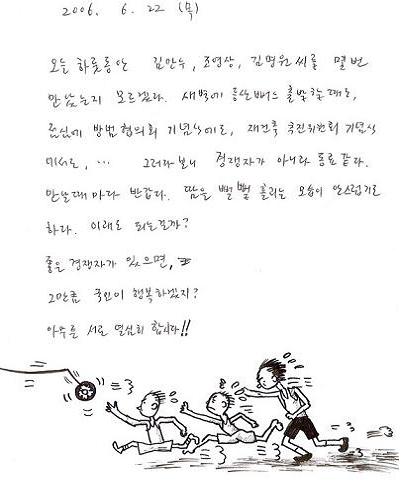 2006. 6. 22 (목)
오늘 하룻동안 김안수, 조영상, 김명원 씨를 몇번
만났는지 모르겠다. 새벽에 등산버스 출발할때도,
점심에 방범협의회 기념식에도, 재건축 추진위원회 기념식
에서도, ... 그러다 보니 경쟁자가 아니라 동료 같다.
만날때 마다 반갑다. 땀을 뻘뻘 흘리는 모습이 안스럽기도
하다. 이래도 되는걸까?
좋은 경쟁자가 있으면,
그만큼 국민이 행복하겠지?
아무튼 서로 열심히 합시다!!